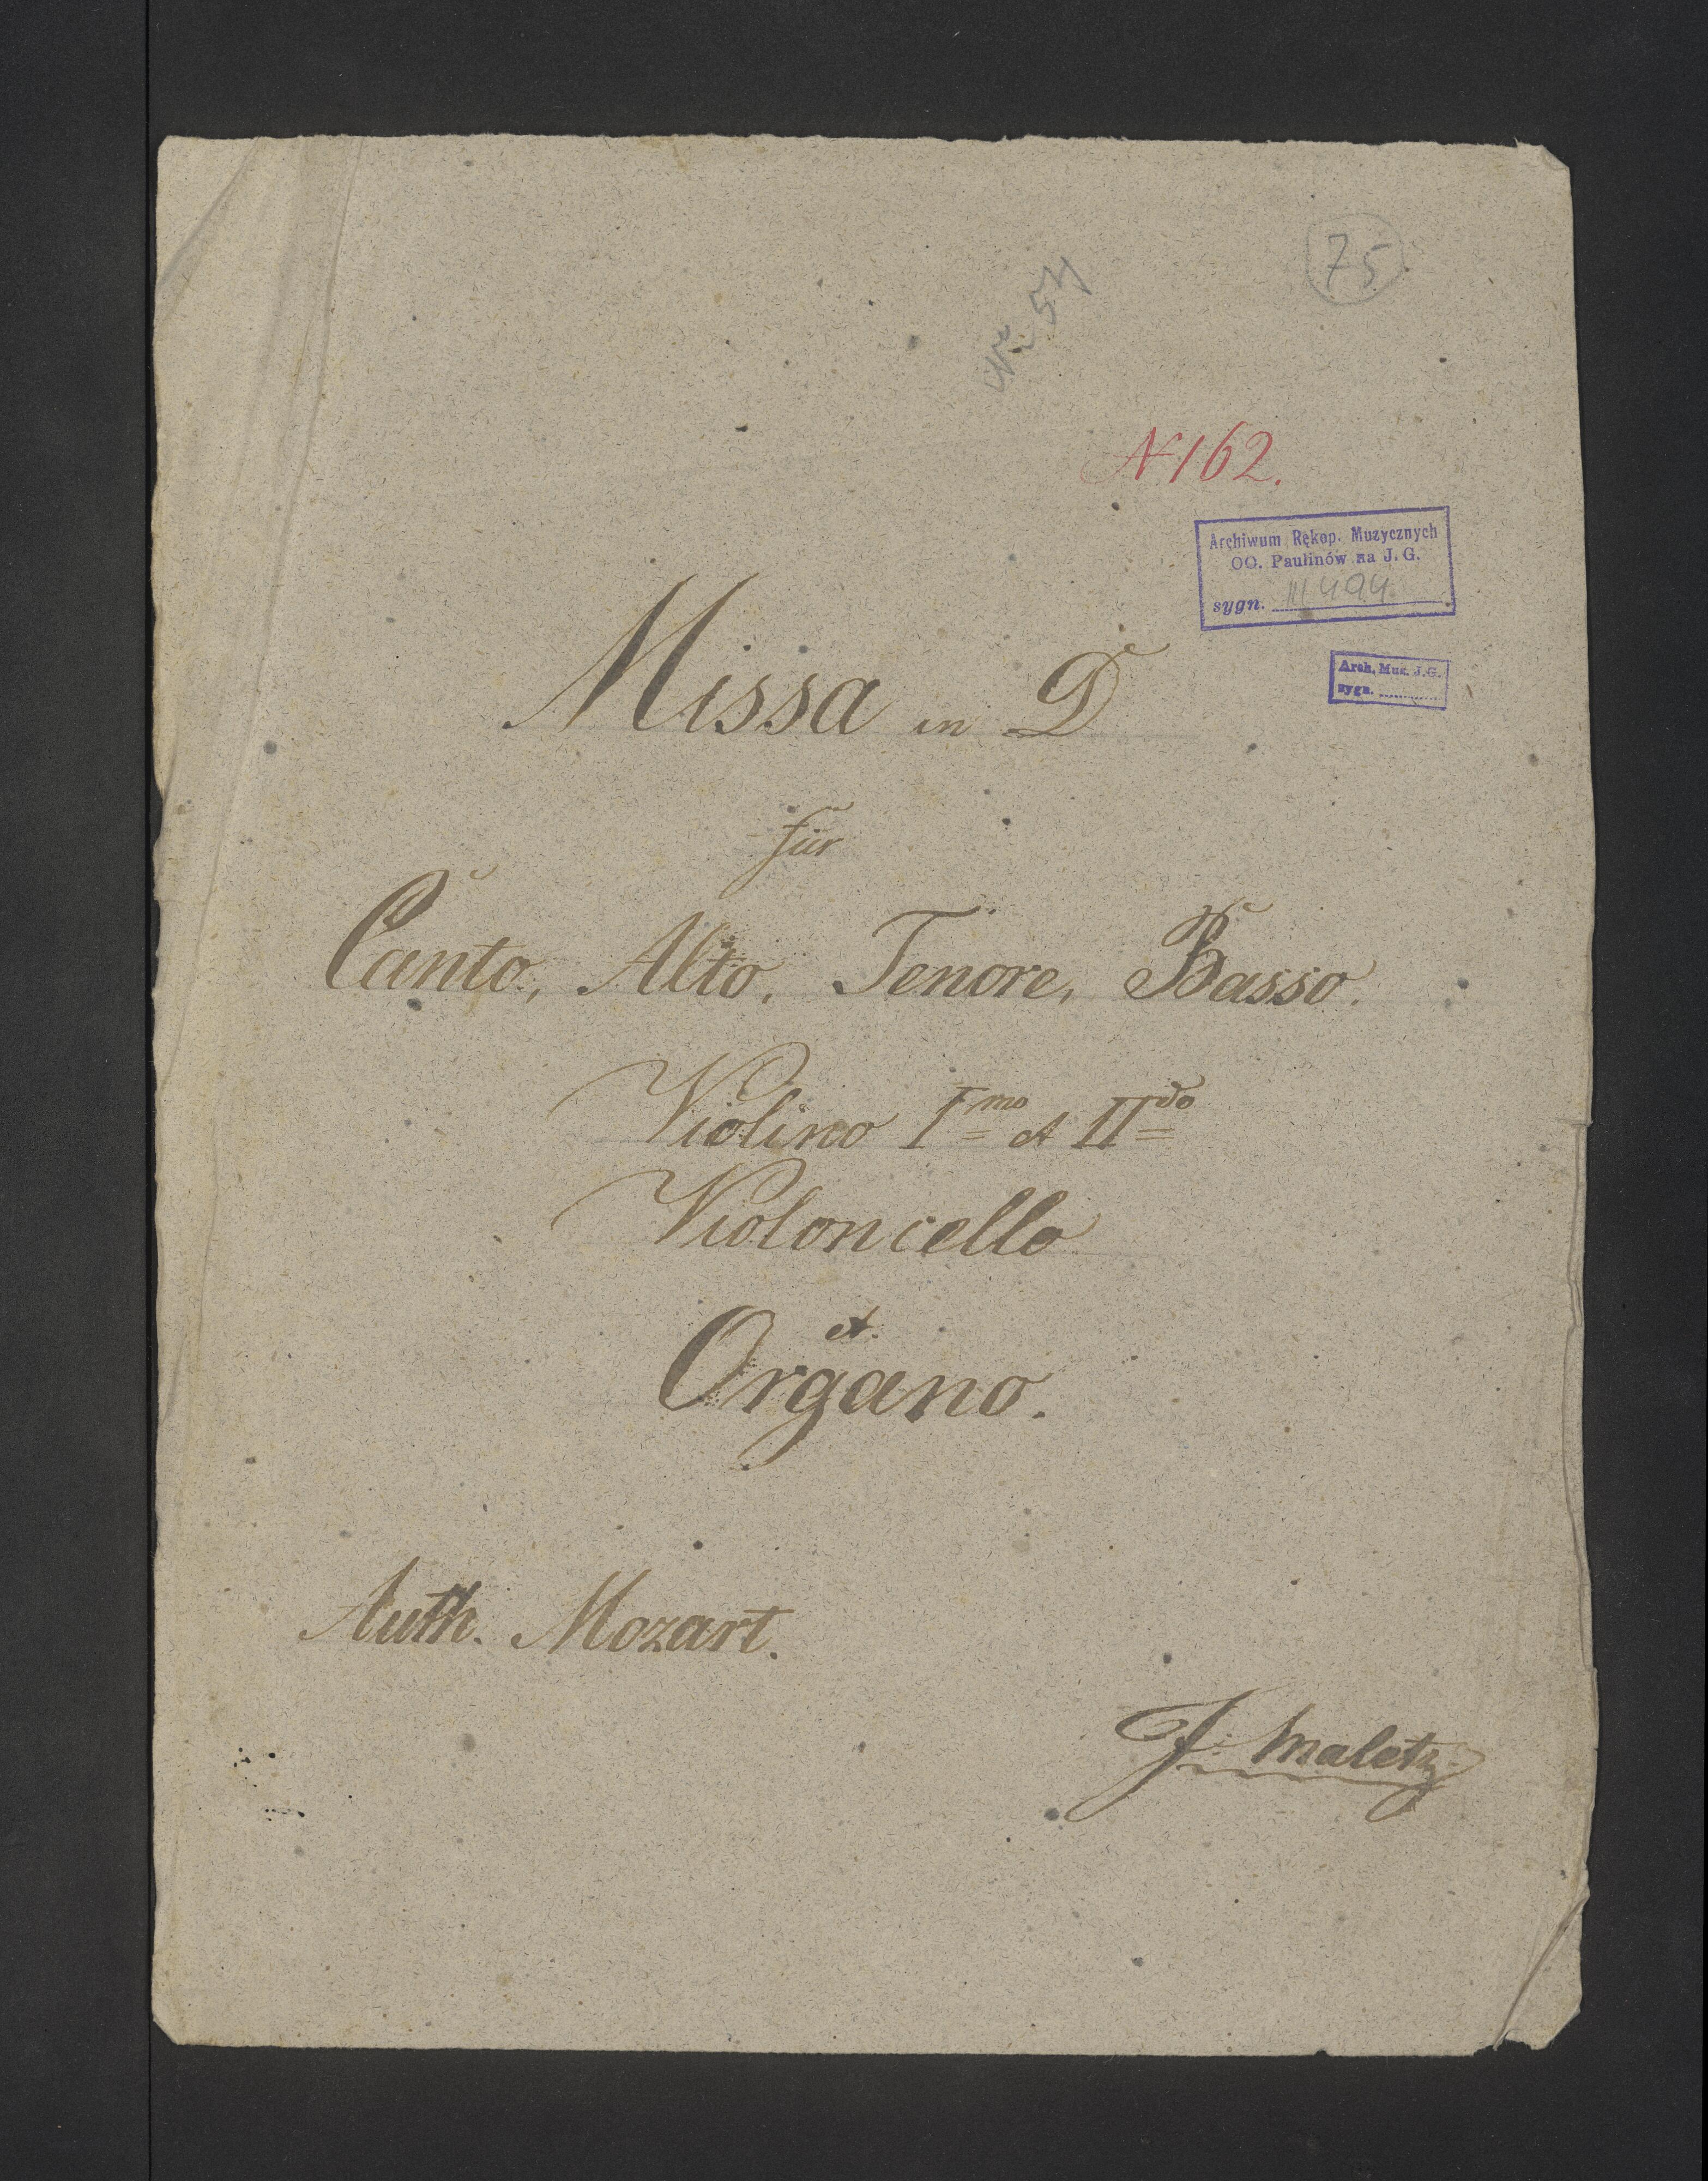 75
No. 54
N 162.
Archiwum Rękop. Muzycznych
OO. Paulinów na J. G.
sygn. III 494.
Arch. Muz. J.G.
sygn. ............
Missa in D
für
Canto, Alto, Tenore, Basso.
Violino Imo et IIdo
Violoncello
et.
Organo.
Auth. Mozart.
J. Maletz.